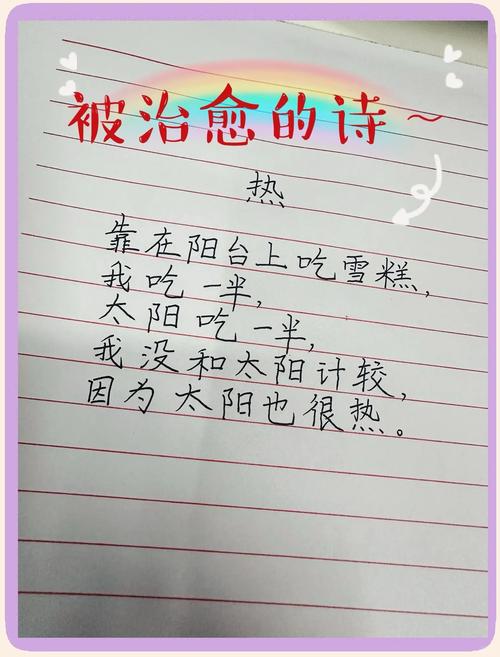 被治愈的诗~
热
靠在阳台上吃雪糕，
我吃一半，
太阳吃一半，
我没和太阳计较，
因为太阳也很热。